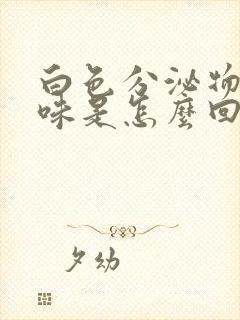 白色分泌物
味是怎麼回
夕幼